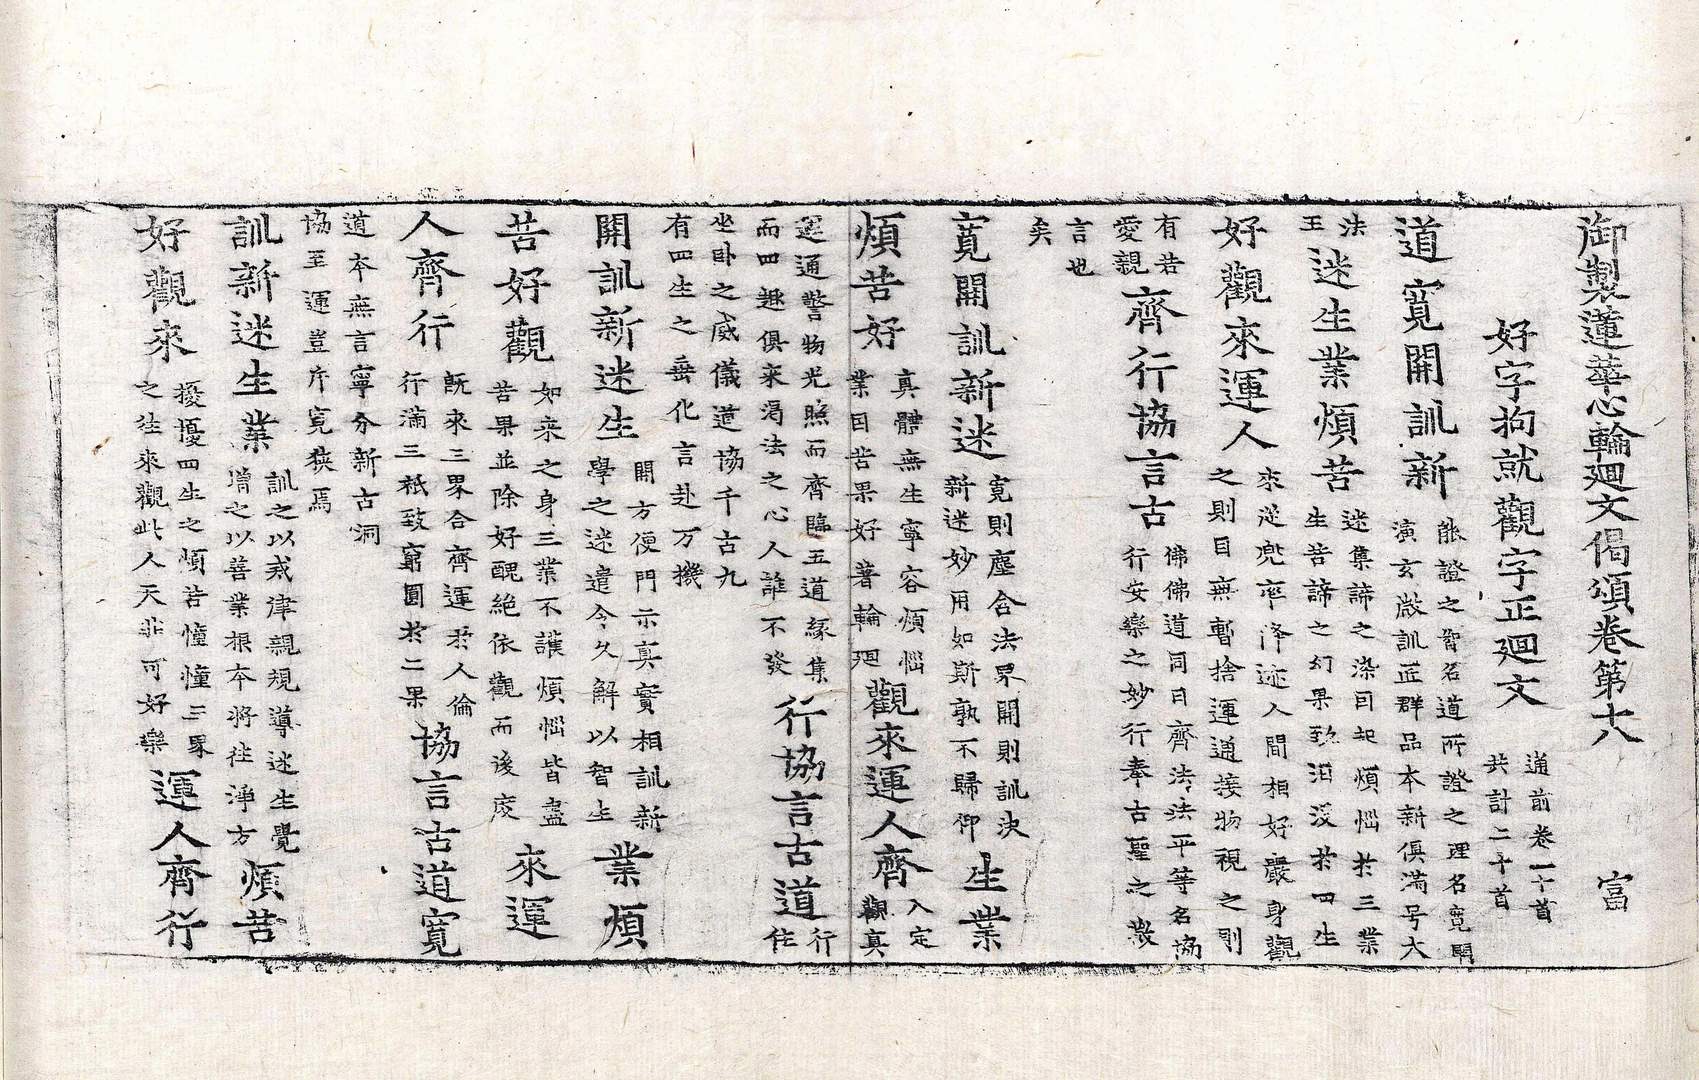 御製蓮華心輪廻文偈頌卷第六 富
好字拘就觀字正廻文 通前卷一十首 共計二十首
道寬開訓新 能證之智名道所證之理名寬開 演玄㪚訓匠群品本新俱滿号大
法王 迷生業煩苦 迷集諦之染因起煩惱於三業 生苦諦之幻果致汩没於四生
好觀來運人 來從兜率降迹人間相好嚴身觀 之則目無暫捨運通接物視之則
有若愛親 齊行協言古 佛佛道同曰齊法法平等名協 行安樂之妙行奉古聖之微
言也矣
寬開訓新迷 寬則塵合法界開則訓決 新迷妙用如斯孰不歸仰 生業
煩苦好 真體無生寧容煩惱 業因苦果好著輪廻 觀來運人齊 入定 觀真
運通警物光照而齊臨五道緣集 而四趣俱來渴法之心人誰不發 行協言古道 行住
坐卧之威儀道協千古九 有四生之垂化言赴万機
開訓新迷生 開方便門示真實相訓新 學之迷遣令久解以智生 業煩
苦好觀 如來之身三業不護煩惱皆盡 苦果並除好醜絶依觀而後度 來運
人齊行 既來三界合齊運於人倫 行滿三祇致窮圓於二果 協言古道寬
道本無言寧分新古洞 協至運豈斥寬狹焉
訓新迷生業 訓之以戒律親規導迷生覺 增之以善業根本將往淨方 煩苦
好觀來 擾擾四生之煩苦憧憧三界 之往來觀此人天非可好樂 運人齊行